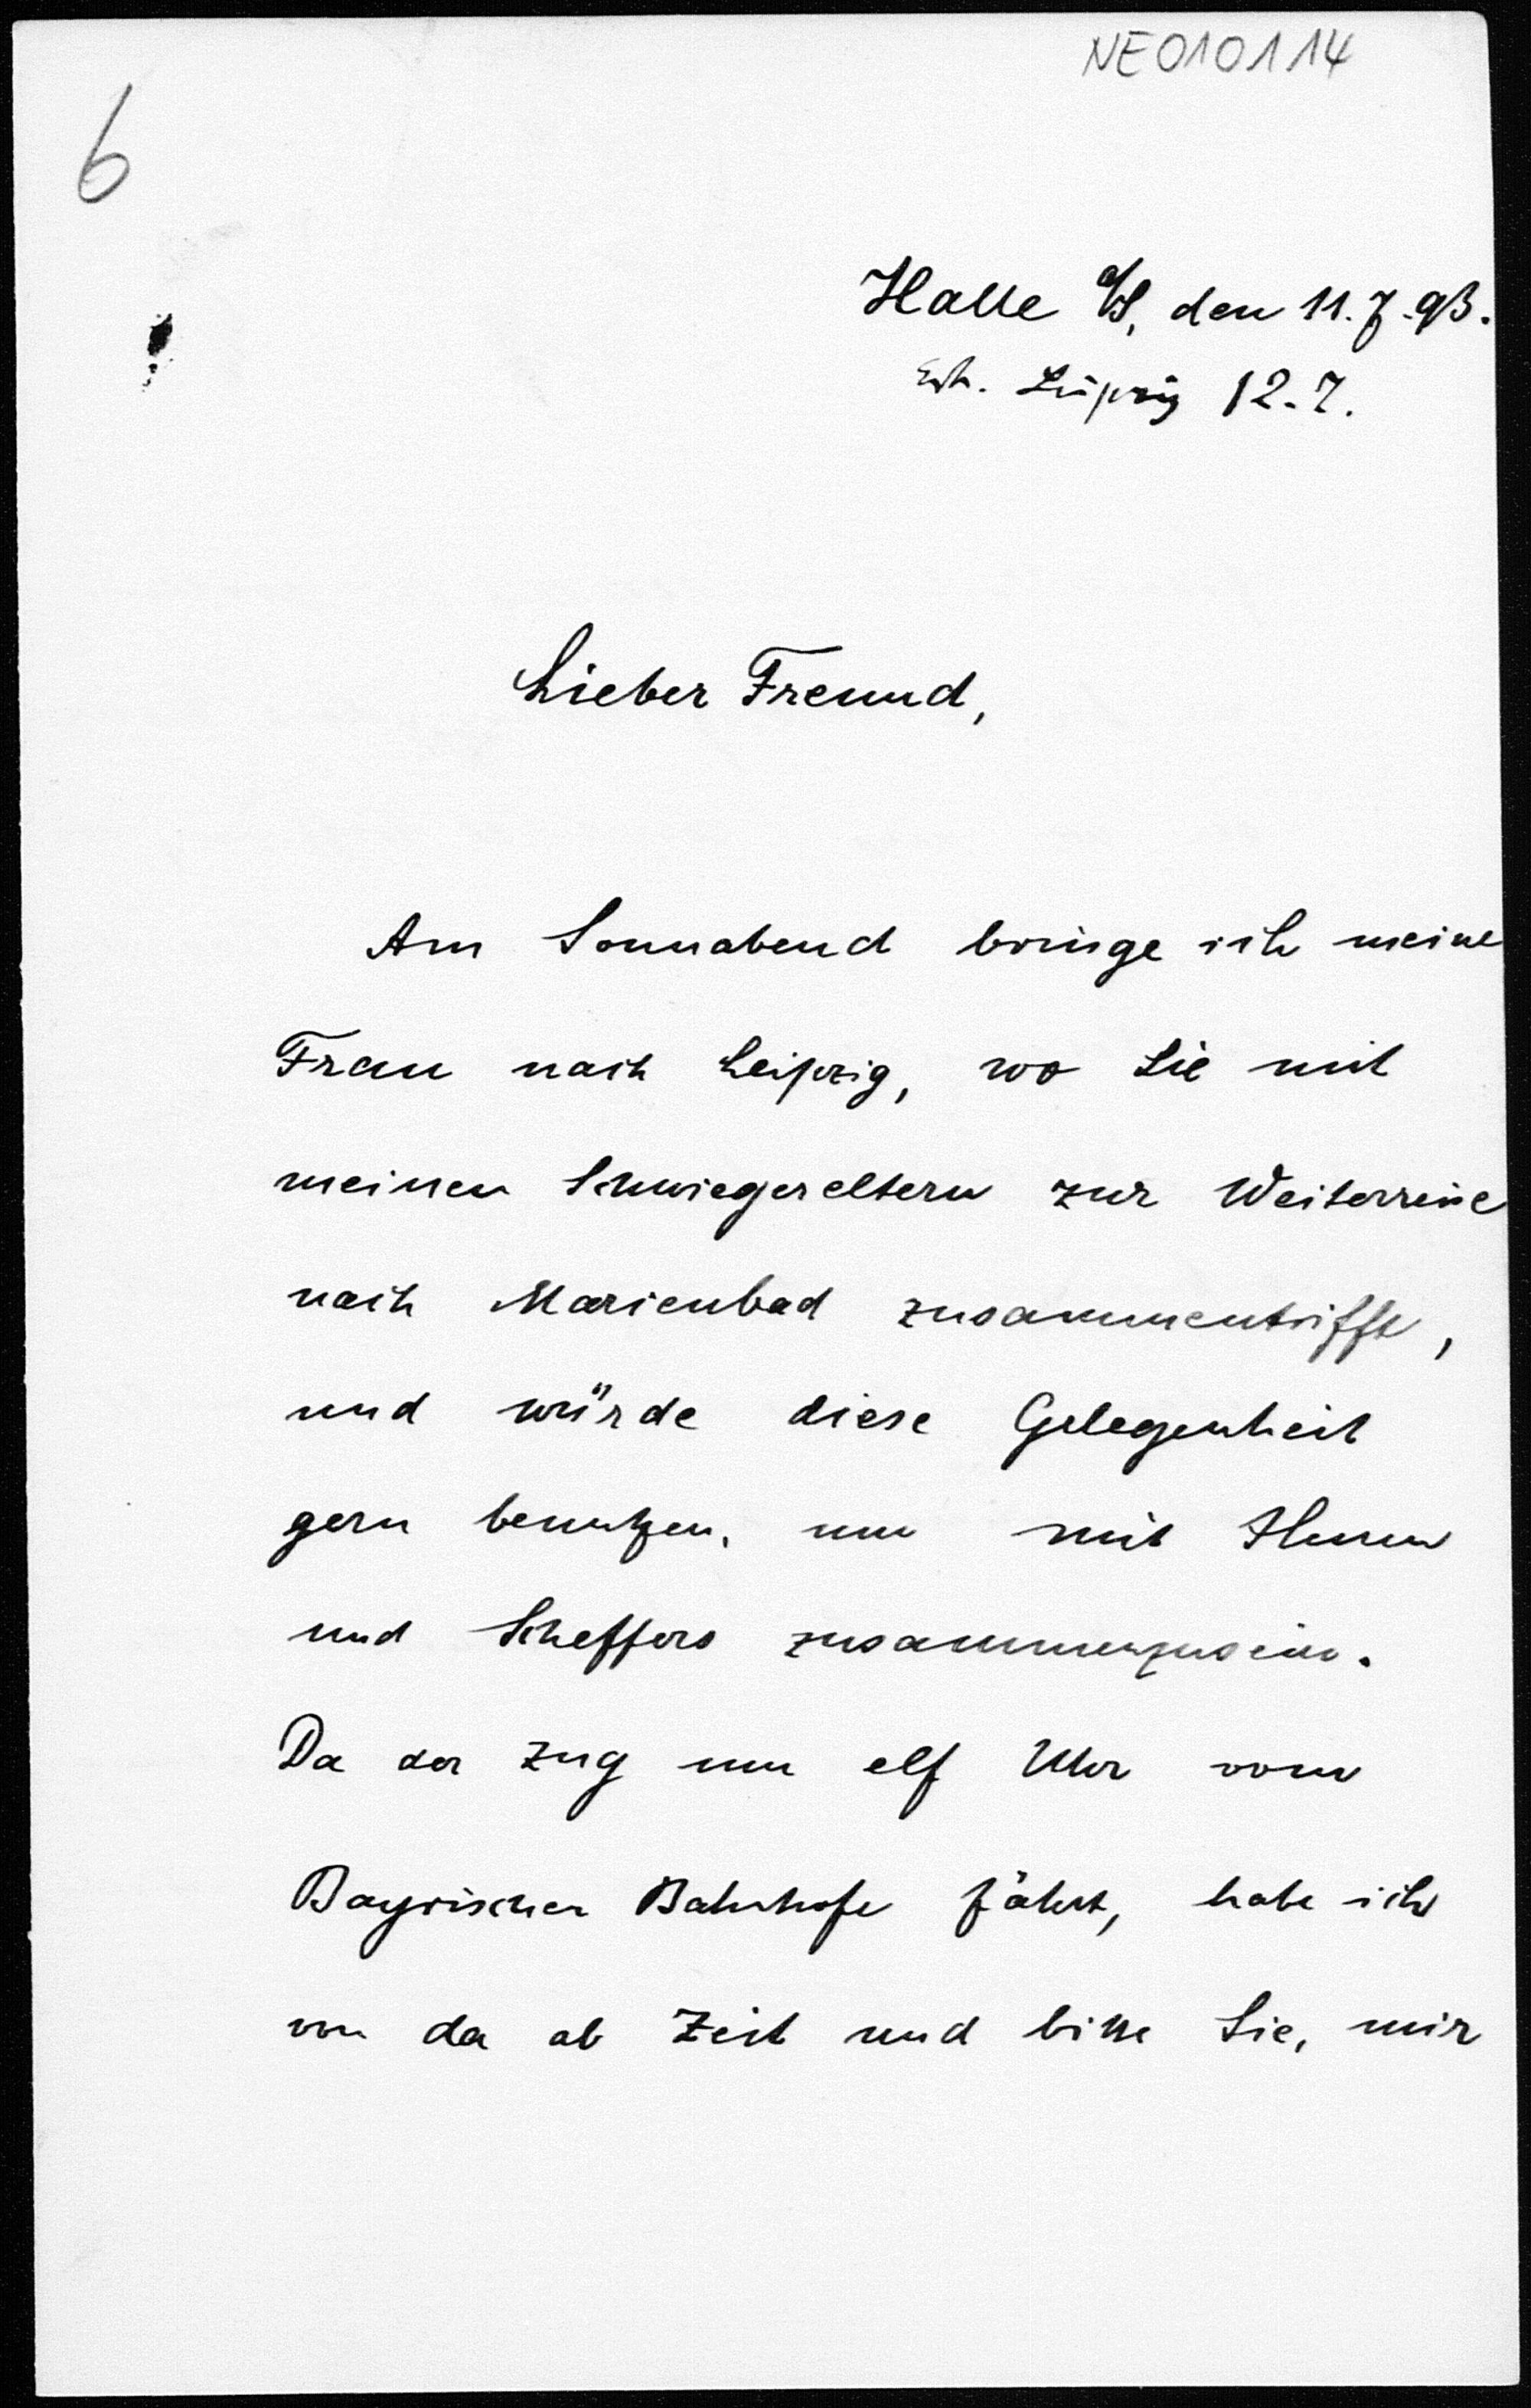 NE010114
6
Halle a/S, den 11.7.93.
Erh. Leipzig 12.7.
Lieber Freund,
Am Sonnabend bringe ich meine
Frau nach Leipzig, wo sie mit
meinen Schwiegereltern zur Weiterreise
nach Marienbad zusammentrifft,
und würde diese Gelegenheit
gern benutzen, um mit Ihnen
und Scheffers zusammenzusein.
Da der Zug um elf Uhr vom
Bayrischen Bahnhofe fährt, habe ich
von da ab Zeit und bitte Sie, mir